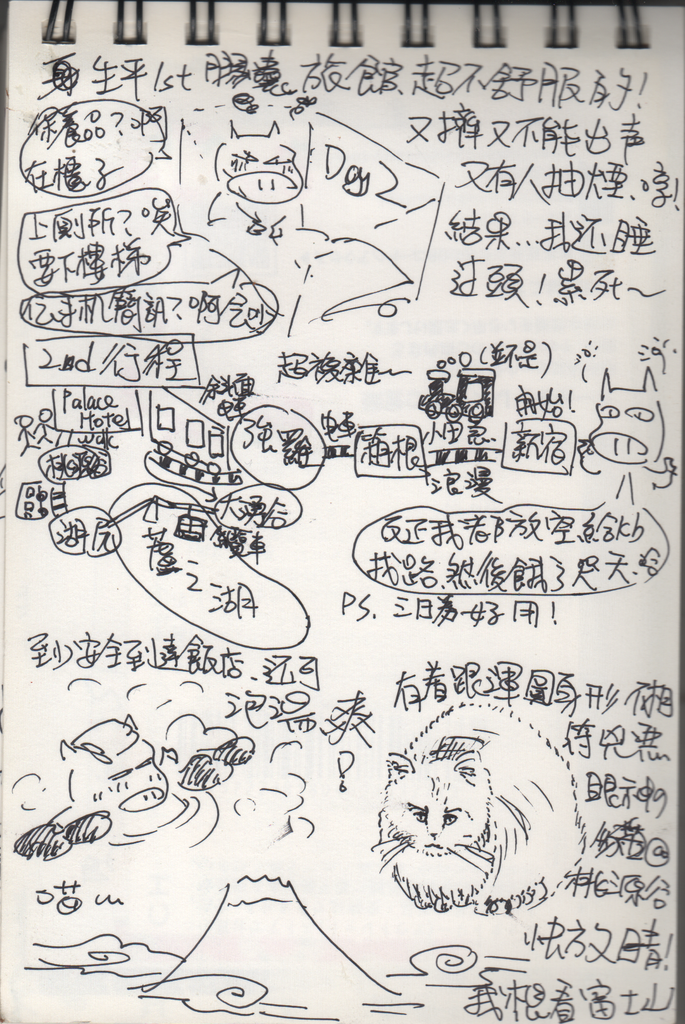 生平1st 膠囊旅館 超不舒服的!
保養品?啊
在櫃子
Day 2
又擠又不能出声
又有人抽煙.哼!
結果...我还睡
过頭!累死~
上厠所?唉
要下樓梯
手机簡訊?啊
2nd行程
超複雜~
(並不是)
開始!
Palace
Hotel
walk
強羅
電車
箱根
小田急
浪漫
新宿
桃源台
大湧谷
纜車
蘆之湖
反正我都放空給kb
找路.然後餓了哭天
PS. 三日券好用!
到安全到達飯店.还可
泡湯 爽
!
有着跟渾圓身形不相
符兇惡
眼神の
貓@
桃源台
喵~
快放晴!
我想看富士山